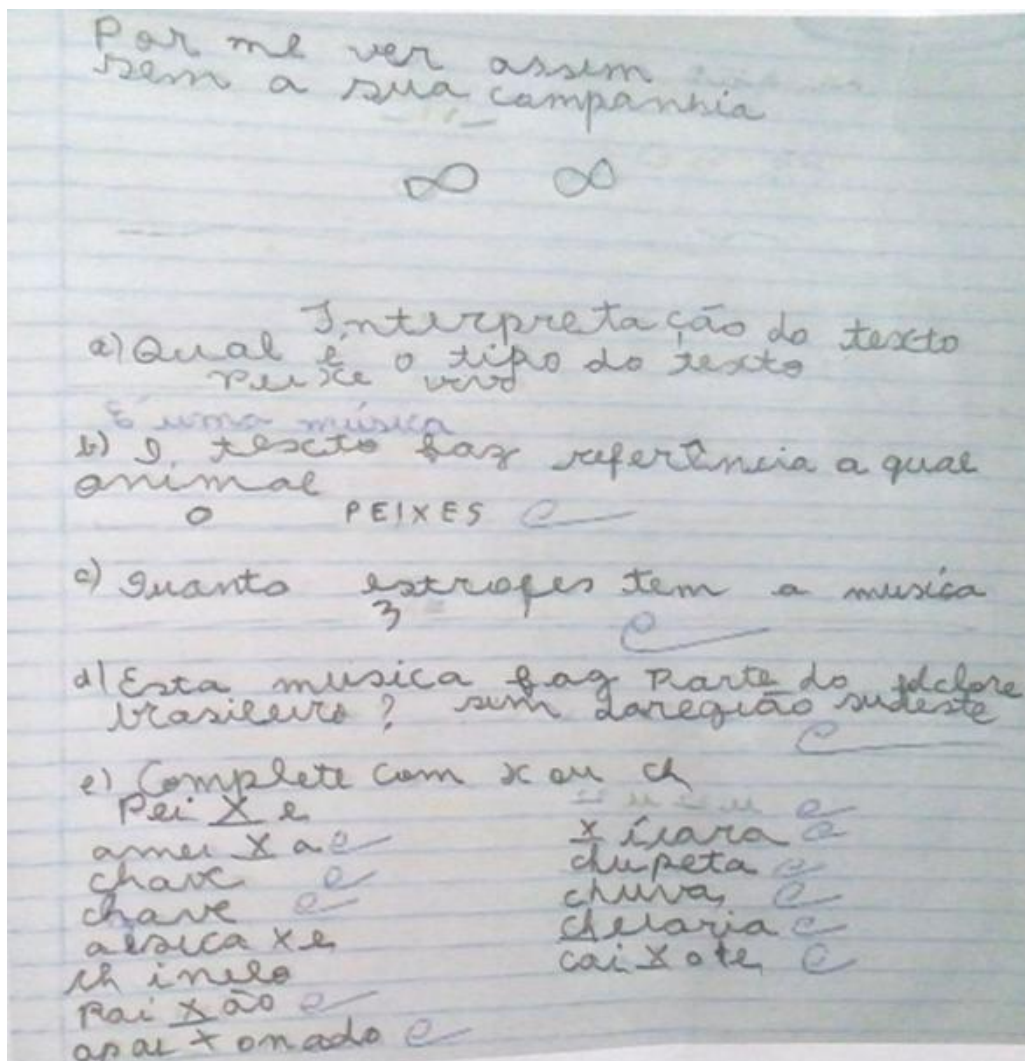 Por me ver assim
sem a sua companhia
Interpretação do texto
a) Qual é o tipo do texto
Peixe vivo
É uma música
b) O texto faz referência a qual
animal
o PEIXES
c) Quanto estrofes tem a musica
3
d) Esta musica faz Parte do folclore
brasileiro? sim da região sudeste
e) Complete com x ou ch
Pei X e
amei X a
x ícara
chave
chupeta
chave
chuva
xe
ch inelo
cai X ote
Pai X ão
apai x onado